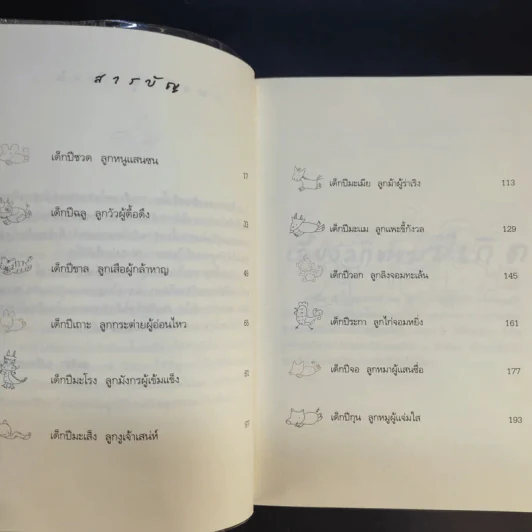 สารบัญ
เด็กปีชวด ลูกหนูแสนซน
11
เด็กปีฉลู ลูกวัวผู้ดื้อดึง
เด็กปีขาล ลูกเสือผู้กล้าหาญ
เด็กปีเถาะ ลูกกระต่ายผู้อ่อนไหว
เด็กปีมะโรง ลูกมังกรผู้เข้มแข็ง
เด็กปีมะเส็ง ลูกงูเจ้าเสน่ห์
เด็กปีมะเมีย ลูกม้าผู้ร่าเริง 113
เด็กปีมะแม ลูกแพะขี้กังวล 129
เด็กปีวอก ลูกลิงจอมทะเล้น 145
เด็กปีระกา ลูกไก่จอมหยิ่ง 161
เด็กปีจอ ลูกหมาผู้แสนซื่อ 177
เด็กปีกุน ลูกหมูผู้แจ่มใส 193